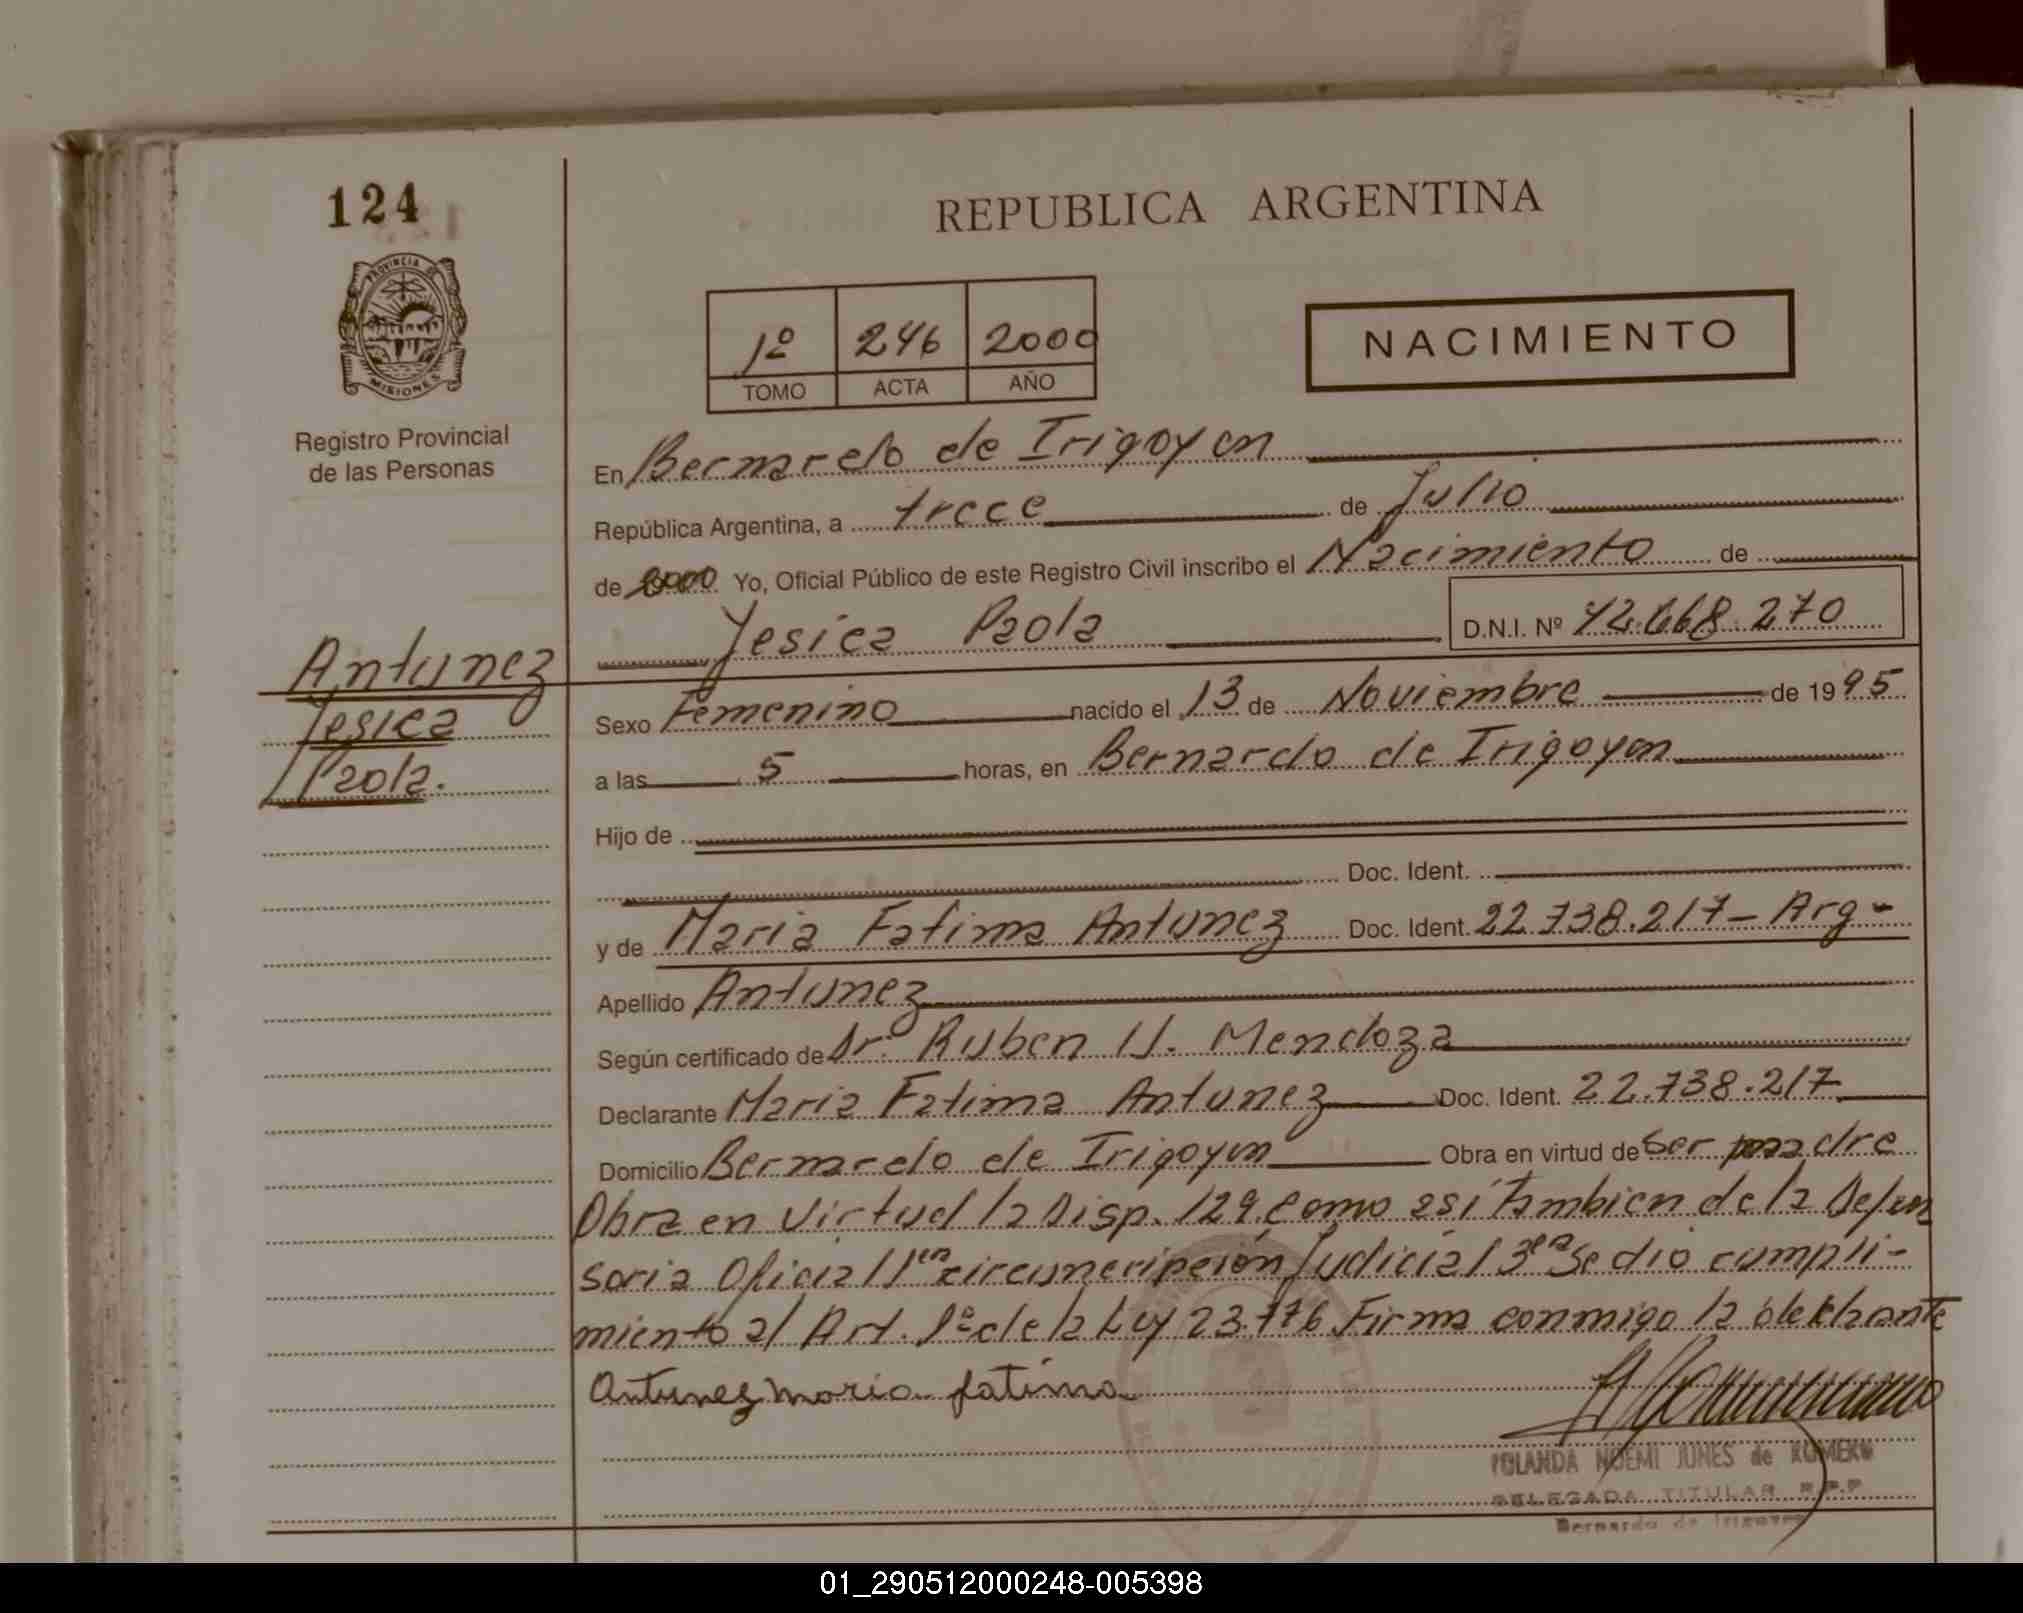 124
REPUBLICA ARGENTINA
PROVINCIA DE
MISIONES
Registro Provincial
de las Personas
1º 246 2000
TOMO ACTA AÑO
NACIMIENTO
En Bernardo de Irigoyen
República Argentina, a trece de Julio
de 2000 Yo, Oficial Público de este Registro Civil inscribo el Nacimiento de
Yesica Paola D.N.I. Nº 42.668.270
Antunez
Yesica
Paola.
Sexo Femenino nacido el 13 de Noviembre de 1995
a las 5 horas, en Bernardo de Irigoyen
Hijo de
Doc. Ident.
y de Maria Fatima Antunez Doc. Ident. 22.738.217- Arg-
Apellido Antunez
Según certificado de Dr. Ruben U. Mendoza
Declarante Maria Fatima Antunez Doc. Ident. 22.738.217
Domicilio Bernardo de Irigoyen Obra en virtud de Ser madre
Obra en virtud la Disp. 129 como así tambien de la Defen
soria Oficial 1era circuncripción Judicial 3era Se dio cumpli-
miento al Art. 1º de la Ley 23.776 Firma conmigo la declarante
Antunez Maria fatima
YOLANDA NOEMI JUNES de ROMERO
DELEGADA TITULAR R.P.P
Bernardo de Irigoyen
01_290512000248-005398